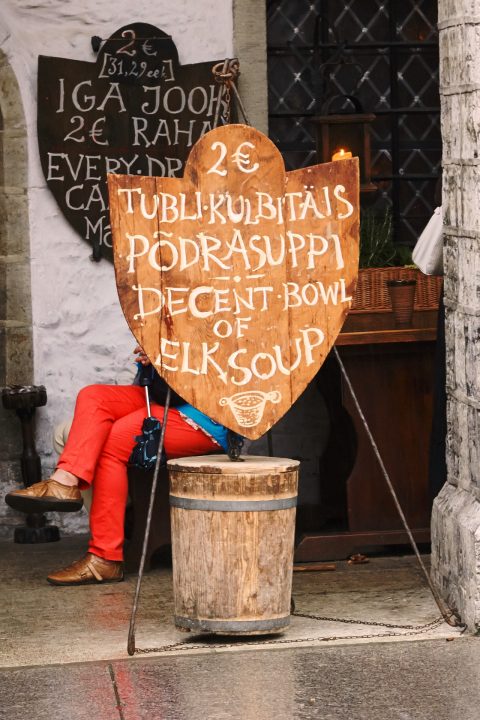 2 €
[31,29 eek]
IGA JOOK
2€ RAHA
EVERY·DR
CA
2€
TUBLI·KULBITÄIS
PÕDRASUPPI
DECENT·BOWL
OF
ELK SOUP